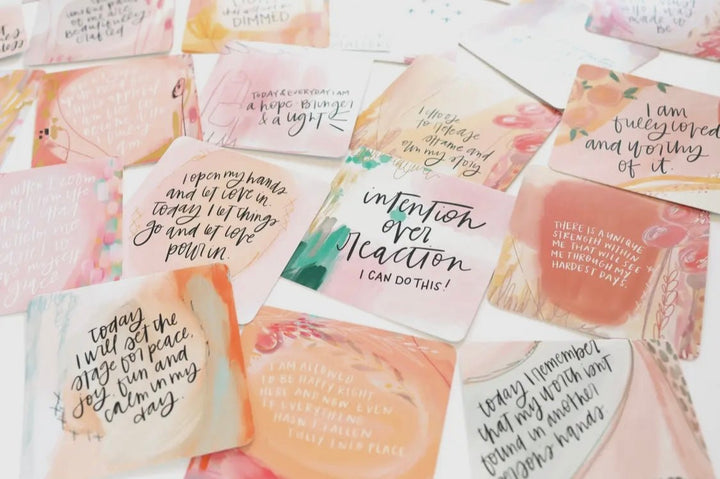 DIMMED
beautifully
crafted
made to
be
TODAY & EVERYDAY I AM
a hope bringer
& a light
I choose
to release
shame and
own my story
I am
fully loved
and worthy
of it.
I open my hands
and let love in.
Today I let things
go and let love
pour in.
intention
over
reaction
I CAN DO THIS!
THERE IS A UNIQUE
STRENGTH WITHIN
ME THAT WILL SEE
ME THROUGH MY
HARDEST DAYS.
when I
give
today
I will set the
stage for peace,
joy, fun and
calm in my
day.
I AM ALLOWED
TO BE HAPPY RIGHT
HERE AND NOW EVEN
IF EVERYTHING
HASN'T FALLEN
FULLY INTO PLACE
today I remember
that my worth isn't
found in another
persons hands.